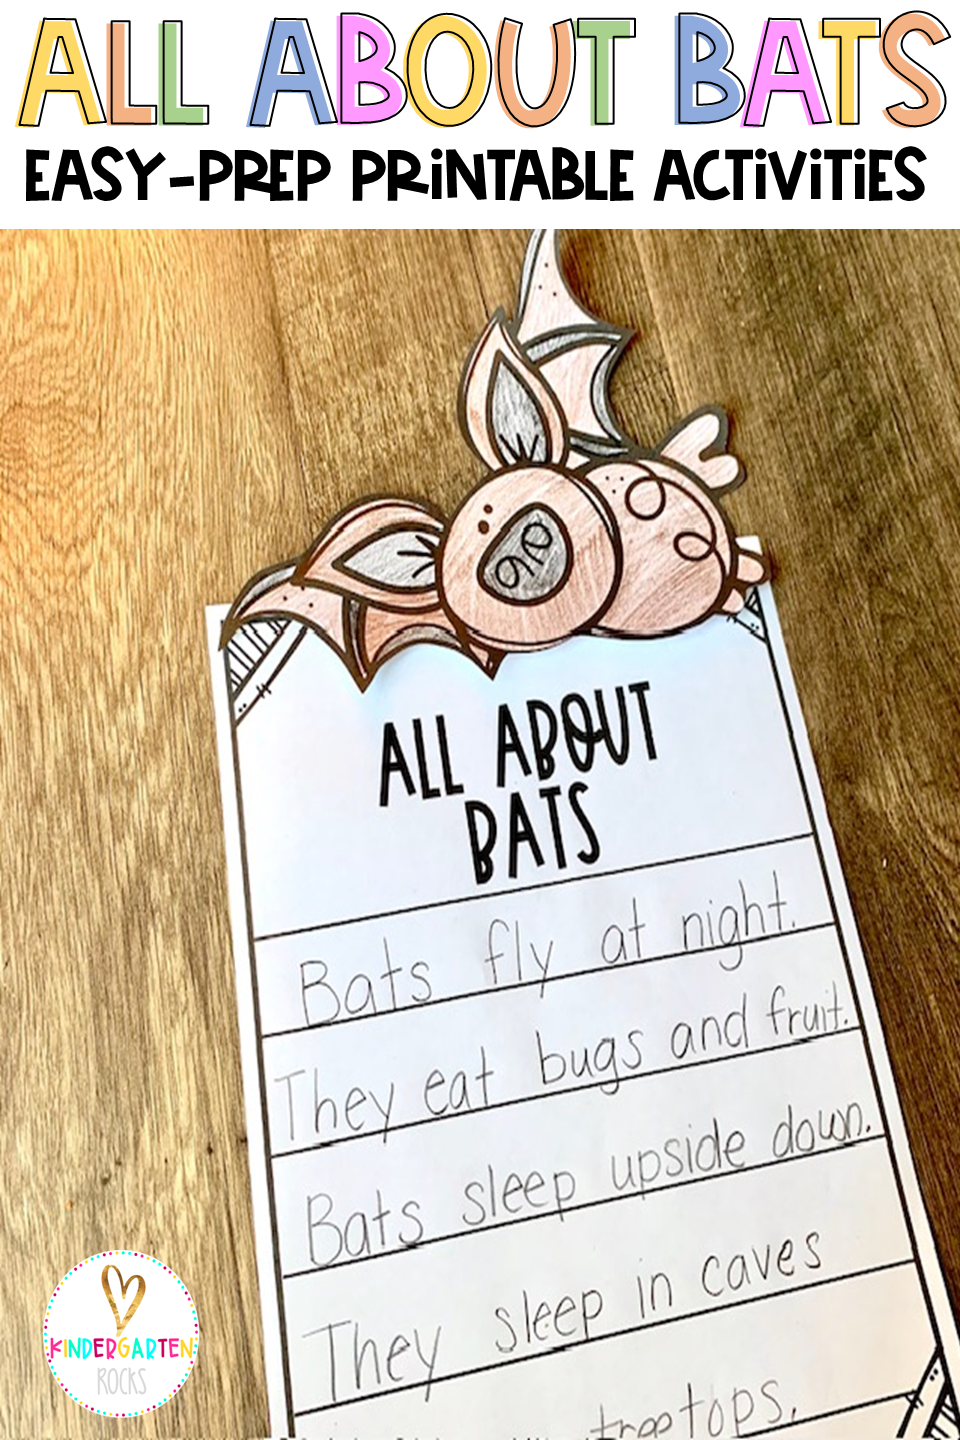 ALL ABOUT BATS
EASY-PREP PRiNTABLE ACTiViTiES
ALL ABOUT
BATS
Bats fly at night.
They eat bugs and fruit.
Bats sleep upside down.
They sleep in caves
treetops.
KINDERGARTEN
ROCKS